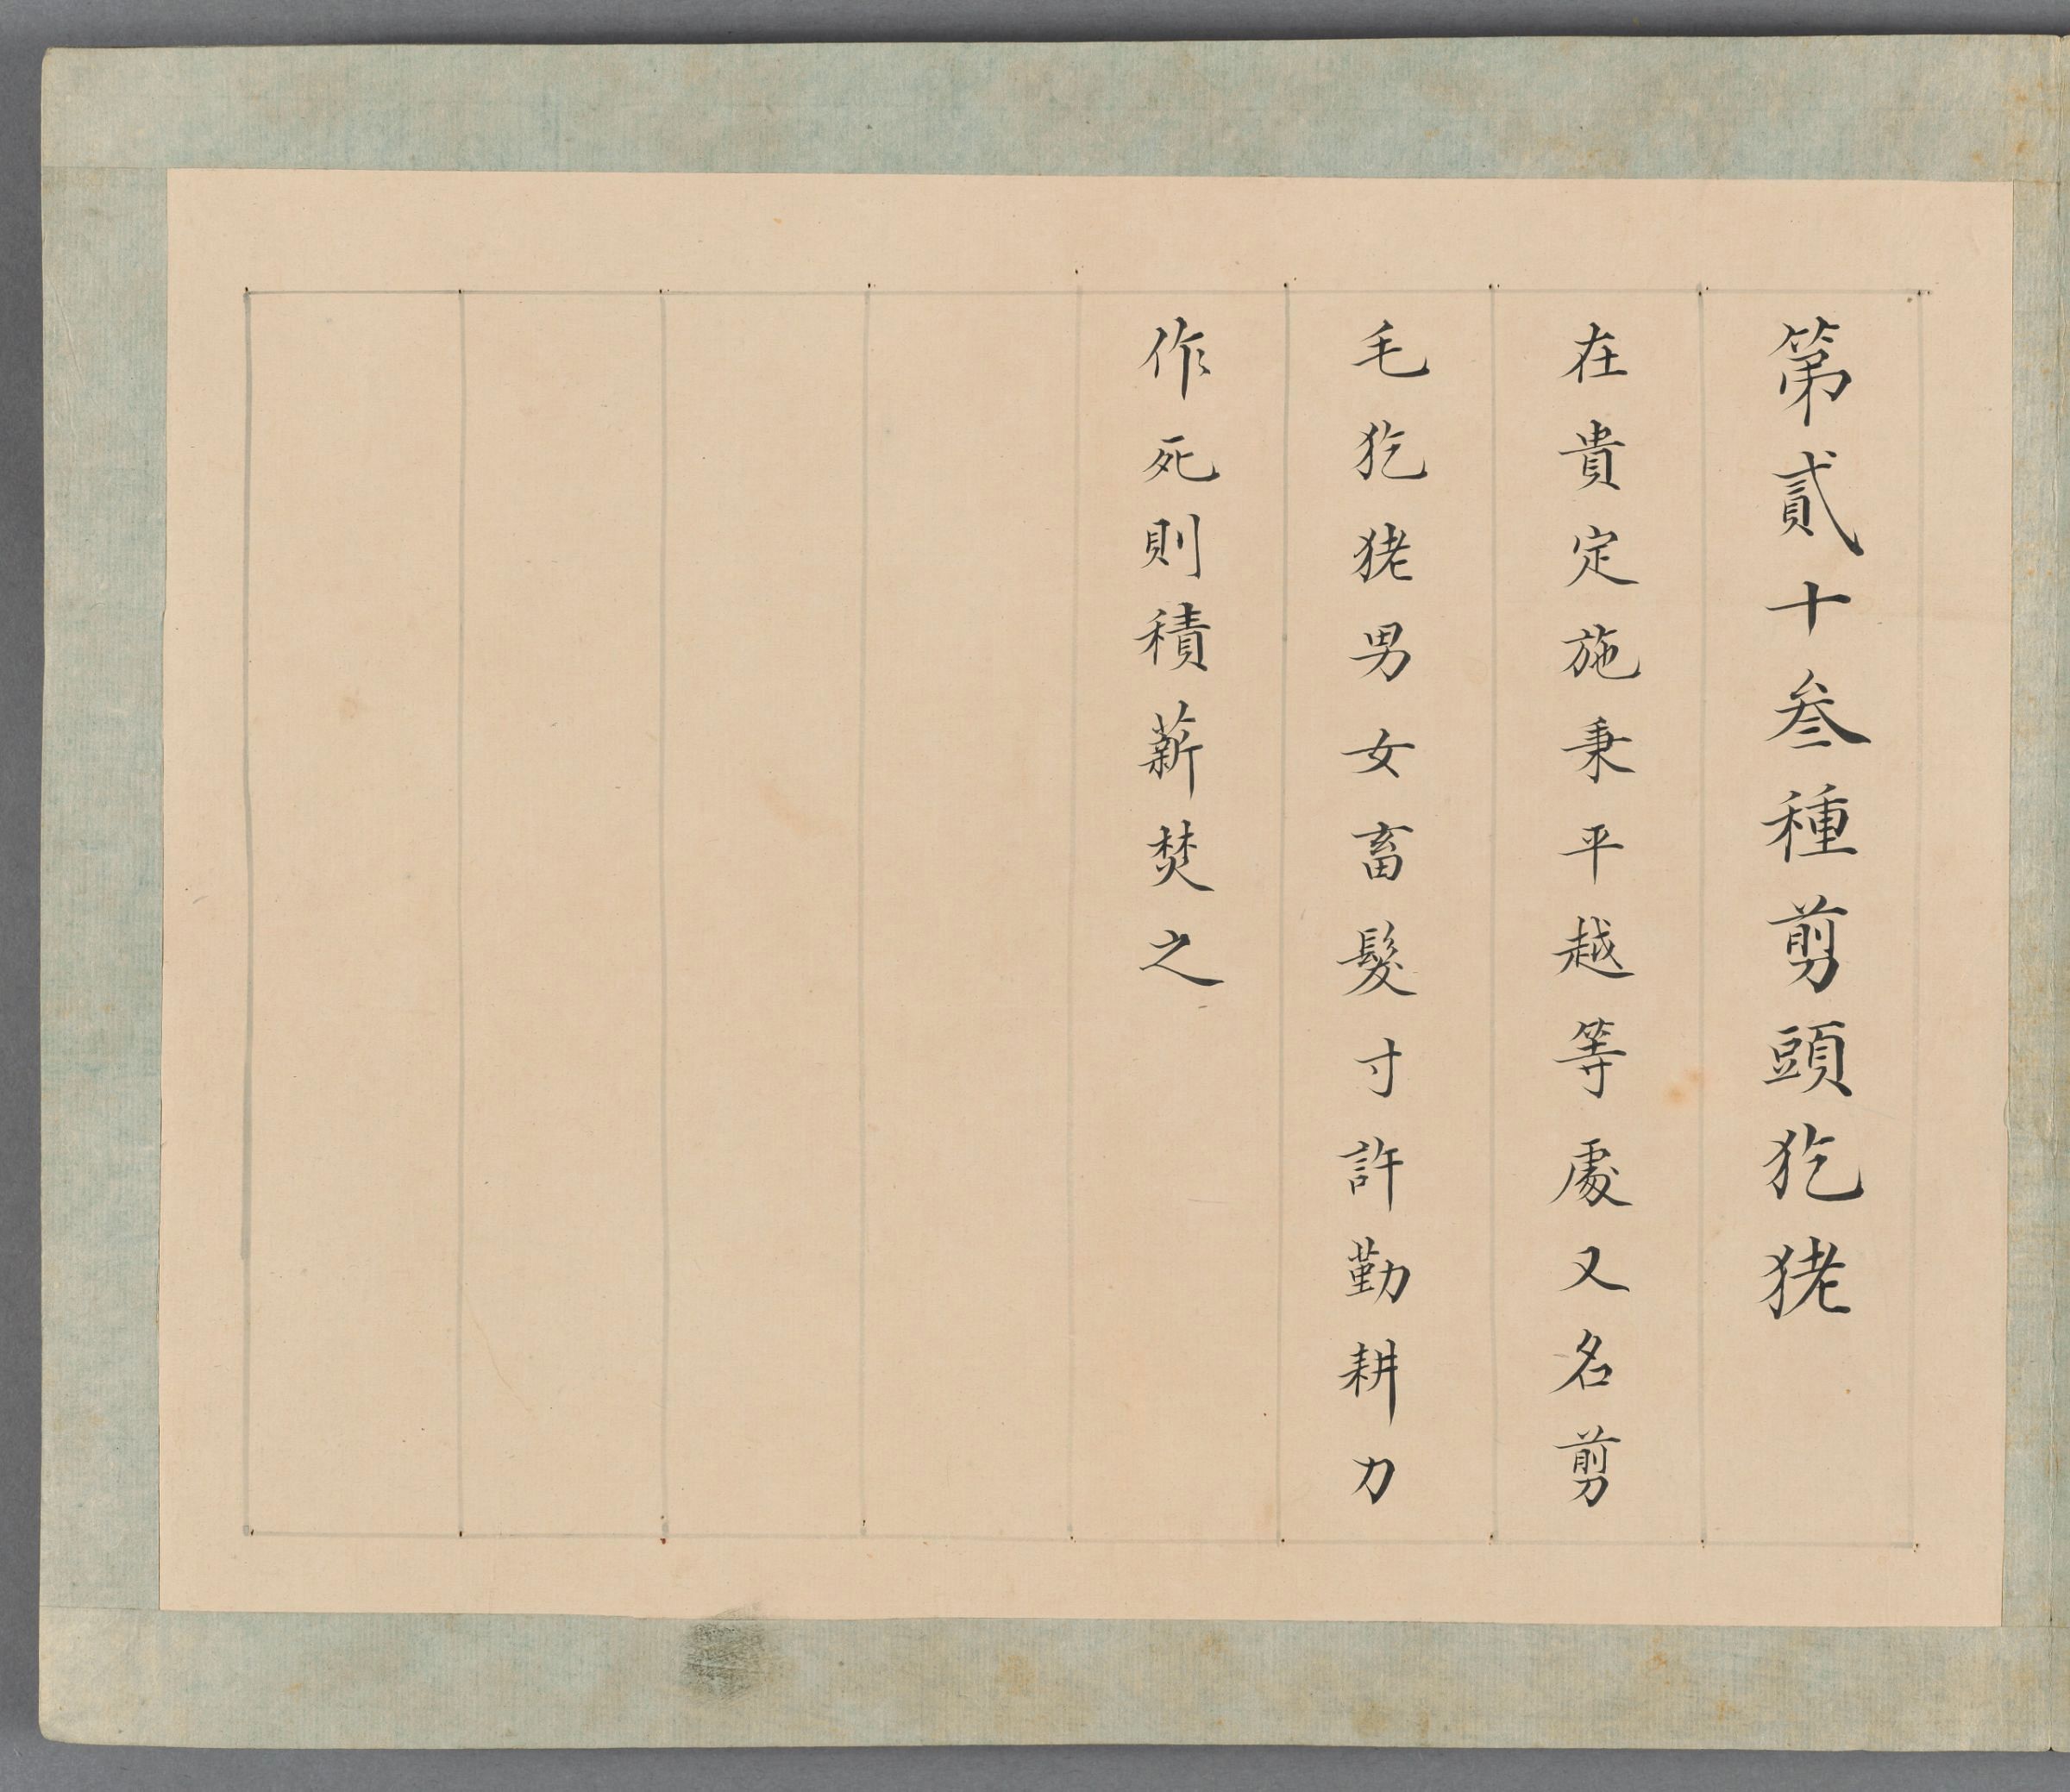 第貳十叁種剪頭犵狫
在貴定施秉平越等處又名剪
毛犵狫男女畜髮寸許勤耕力
作死則積薪焚之